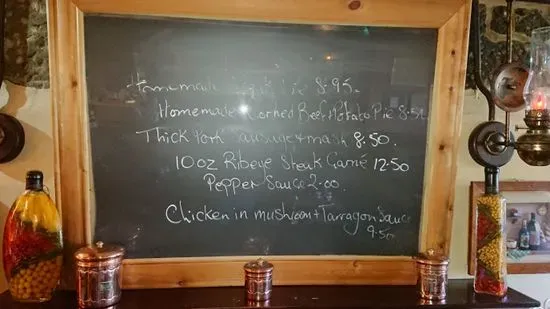 Homemade Pie 8.95
Homemade Corned Beef + Potato Pie 8.50
Thick Pork Sausage + mash 8.50.
10 oz Ribeye Steak Garné 12.50
Pepper Sauce 2.00.
Chicken in mushroom + Tarragon Sauce
9.50